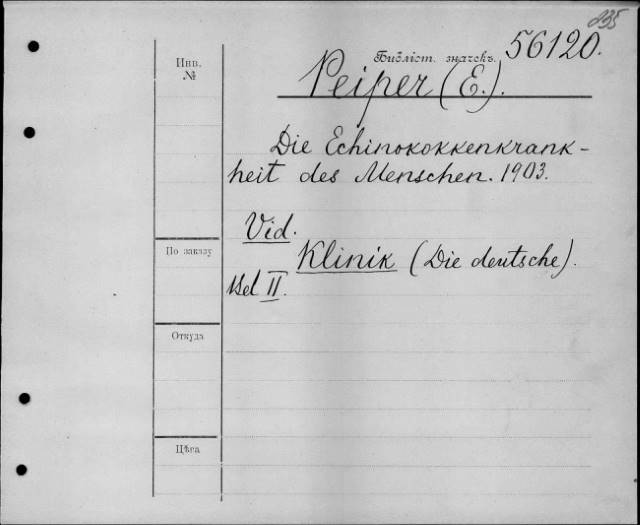 235
56120.
Инв.
№
Библіст. значекъ
Peiper (E.).
Die Echinokokkenkrank-
heit des Menschen. 1903.
Vid.
По заказу
Klinik (Die deutsche).
Bd II.
Откуда
Цѣна